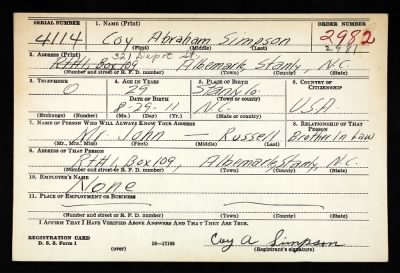 SERIAL NUMBER 1. NAME (Print) ORDER NUMBER
4114 Coy Abraham Simpson 2982
(First) (Middle) (Last) 2981
2. ADDRESS (Print) 321 Depot St,
Rt#1, Box 109 Albemarle, Stanly, N.C.
(Number and street or R. F. D. number) (Town) (County) (State)
3. TELEPHONE 4. AGE IN YEARS 5. PLACE OF BIRTH 6. COUNTRY OF CITIZENSHIP
O 29 Stanly Co
DATE OF BIRTH (Town or county)
8-29-11 N.C. U.S.A.
(Exchange) (Number) (Mo.) (Day) (Yr.) (State or country)
7. NAME OF PERSON WHO WILL ALWAYS KNOW YOUR ADDRESS 8. RELATIONSHIP OF THAT PERSON
Mr. John — Russell Brother In Law
(Mr., Mrs., Miss) (First) (Middle) (Last)
9. ADDRESS OF THAT PERSON
Rt#1, Box 109, Albemarle, Stanly, N.C.
(Number and street or R. F. D. number) (Town) (County) (State)
10. EMPLOYER'S NAME
None
11. PLACE OF EMPLOYMENT OR BUSINESS
(Number and street or R. F. D. number) (Town) (County) (State)
I AFFIRM THAT I HAVE VERIFIED ABOVE ANSWERS AND THAT THEY ARE TRUE.
REGISTRATION CARD
D. S. S. Form 1 (over) 16—17105 Coy A Simpson
(Registrant's signature)